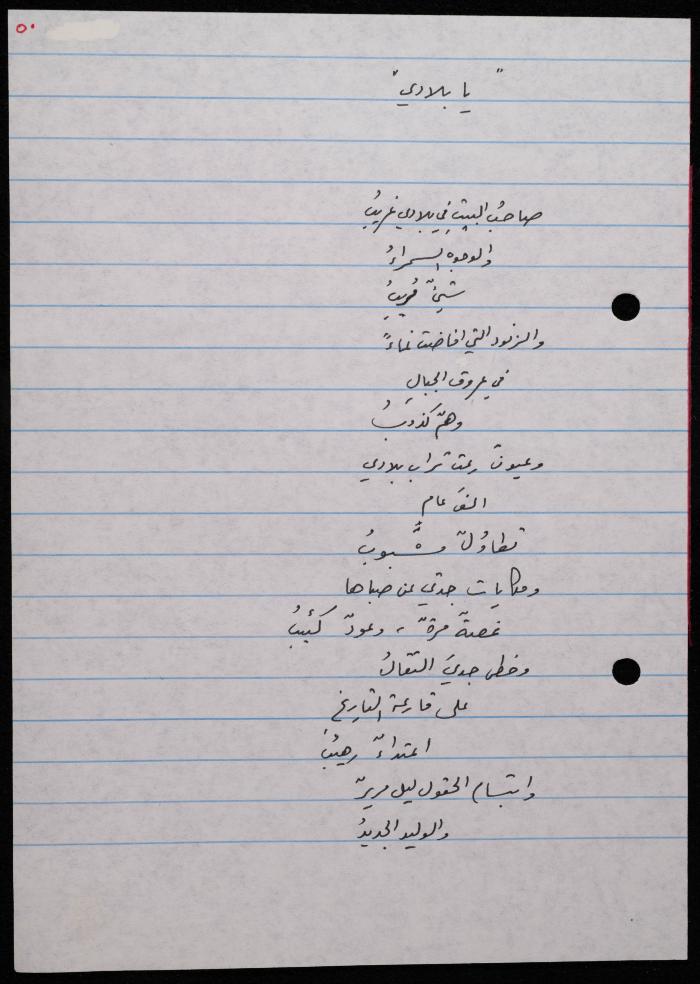 ٥٠
"يا بلادي"
صاحبُ البيتِ في بلادي غريبُ
والوجوهِ السمراءُ
شيءٌ مُريبُ
والزنود التي افاضت نماءً
في عروق الجبالِ
وهمٌ كذوبُ
وعيونٌ رعت تراب بلادي
الفَ عام
تطاولٌ وشُبوبُ
وحكايات جدتي عن صباها
غصةٌ مرةٌ ، وعودٌ كئيبُ
وخطى جديَ الثقالُ
على قارعة التاريخِ
اعتداءٌ رهيبُ
وابتسام الحقول ليل مريرٌ
والوليد الجديدُ